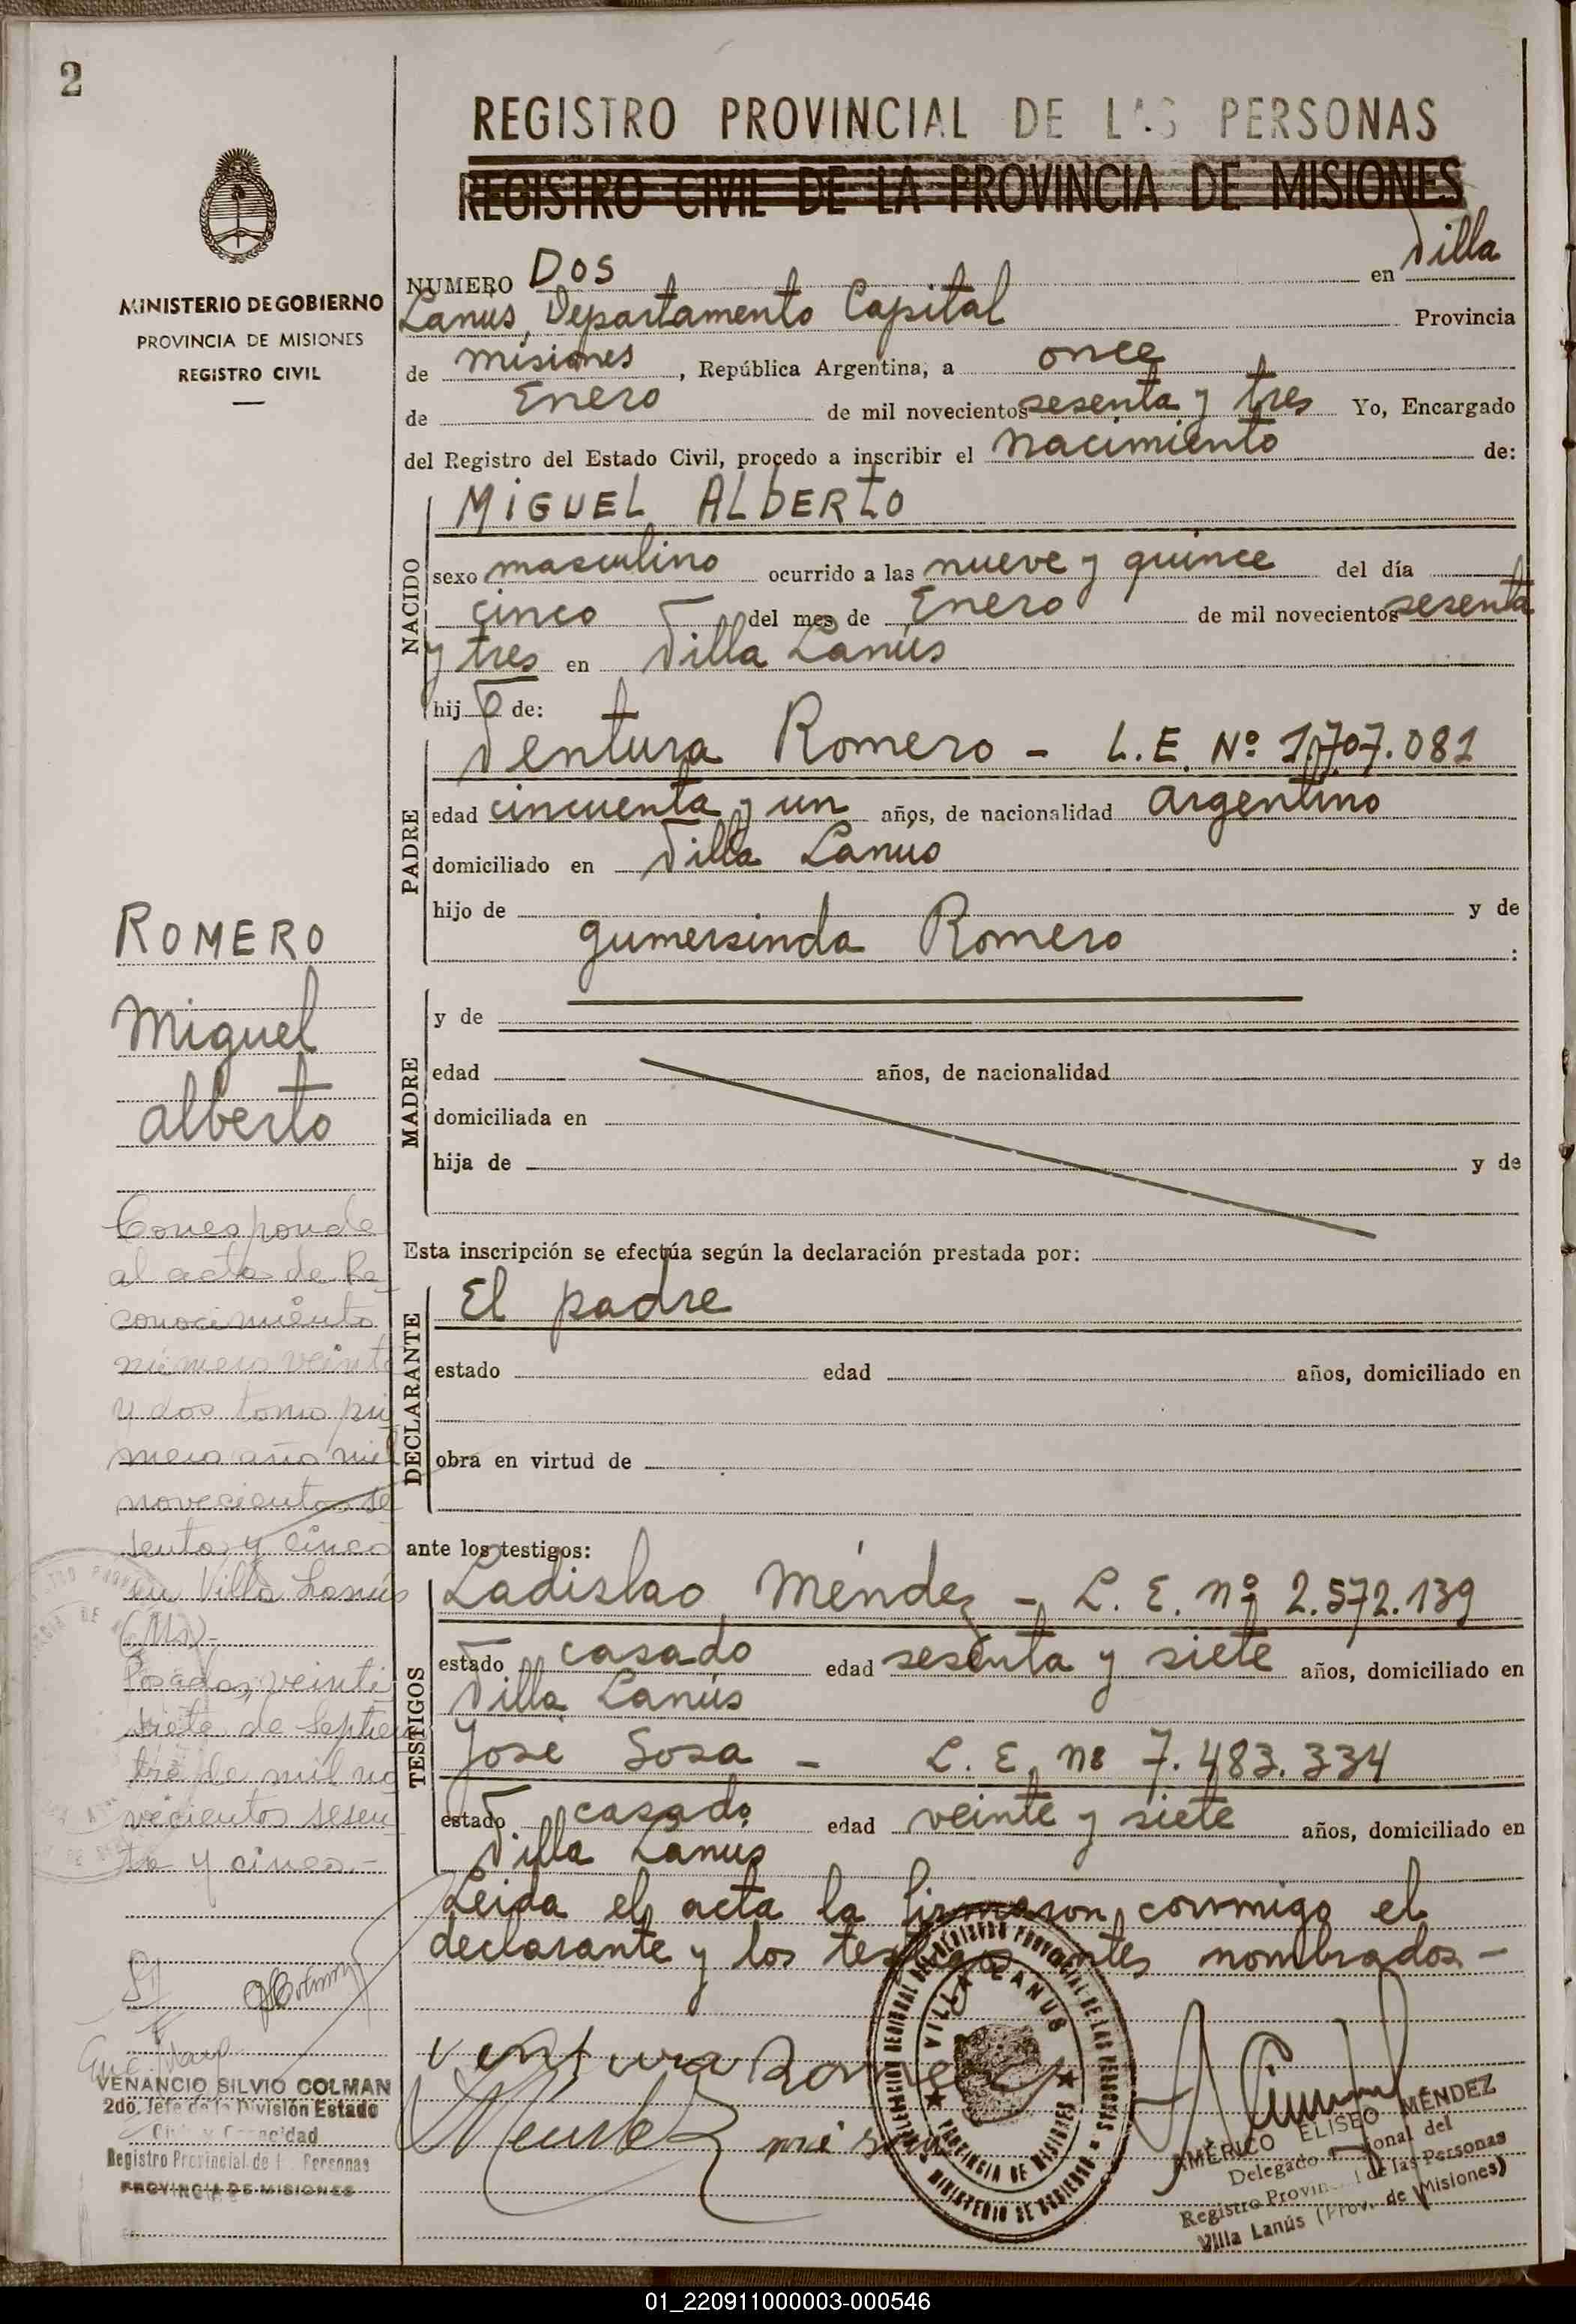 2
REGISTRO PROVINCIAL DE LAS PERSONAS
REGISTRO CIVIL DE LA PROVINCIA DE MISIONES
MINISTERIO DE GOBIERNO
PROVINCIA DE MISIONES
REGISTRO CIVIL
NUMERO Dos en Villa
Lanús, Departamento Capital Provincia
de misiones, República Argentina, a once
de Enero de mil novecientos sesenta y tres Yo, Encargado
del Registro del Estado Civil, procedo a inscribir el nacimiento de:
NACIDO
MIGUEL ALBERTO
sexo masculino ocurrido a las nueve y quince del día
cinco del mes de Enero de mil novecientos sesenta
y tres en Villa Lanús
hijo de:
PADRE
Ventura Romero - L.E. Nº 1.707.081
edad cincuenta y un años, de nacionalidad argentino
domiciliado en Villa Lanús
hijo de y de
gumersinda Romero :
MADRE
y de
edad años, de nacionalidad
domiciliada en
hija de y de
Esta inscripción se efectúa según la declaración prestada por:
DECLARANTE
El padre
estado edad años, domiciliado en
obra en virtud de
ante los testigos:
TESTIGOS
Ladislao Méndez - L.E. Nº 2.572.139
estado casado edad sesenta y siete años, domiciliado en
Villa Lanús
José Sosa - L.E. Nº 7.483.334
estado casado edad veinte y siete años, domiciliado en
Villa Lanús
Leida el acta la firmaron conmigo el
declarante y los testigos antes nombrados -
Ventura Romero
DELEGACION REGIONAL DEL REGISTRO PROVINCIAL DE LAS PERSONAS
VILLA LANUS
PROVINCIA DE MISIONES
MINISTERIO DE GOBIERNO
AMÉRICO ELISEO MÉNDEZ
Delegado Regional del
Registro Provincial de las Personas
Villa Lanús (Prov. de Misiones)
ROMERO
Miguel
alberto
Corresponde
al acta de Re
conocimiento
número veinte
y dos tomo pri
mero año mil
novecientos se
senta y cinco
en Villa Lanús
(Ms)-
Posadas, veinti
siete de Septiem
bre de mil no
vecientos sesen
ta y cinco.-
VENANCIO SILVIO COLMAN
2do. Jefe de la División Estado
Civil y Capacidad
Registro Provincial de las Personas
PROVINCIA DE MISIONES
01_220911000003-000546